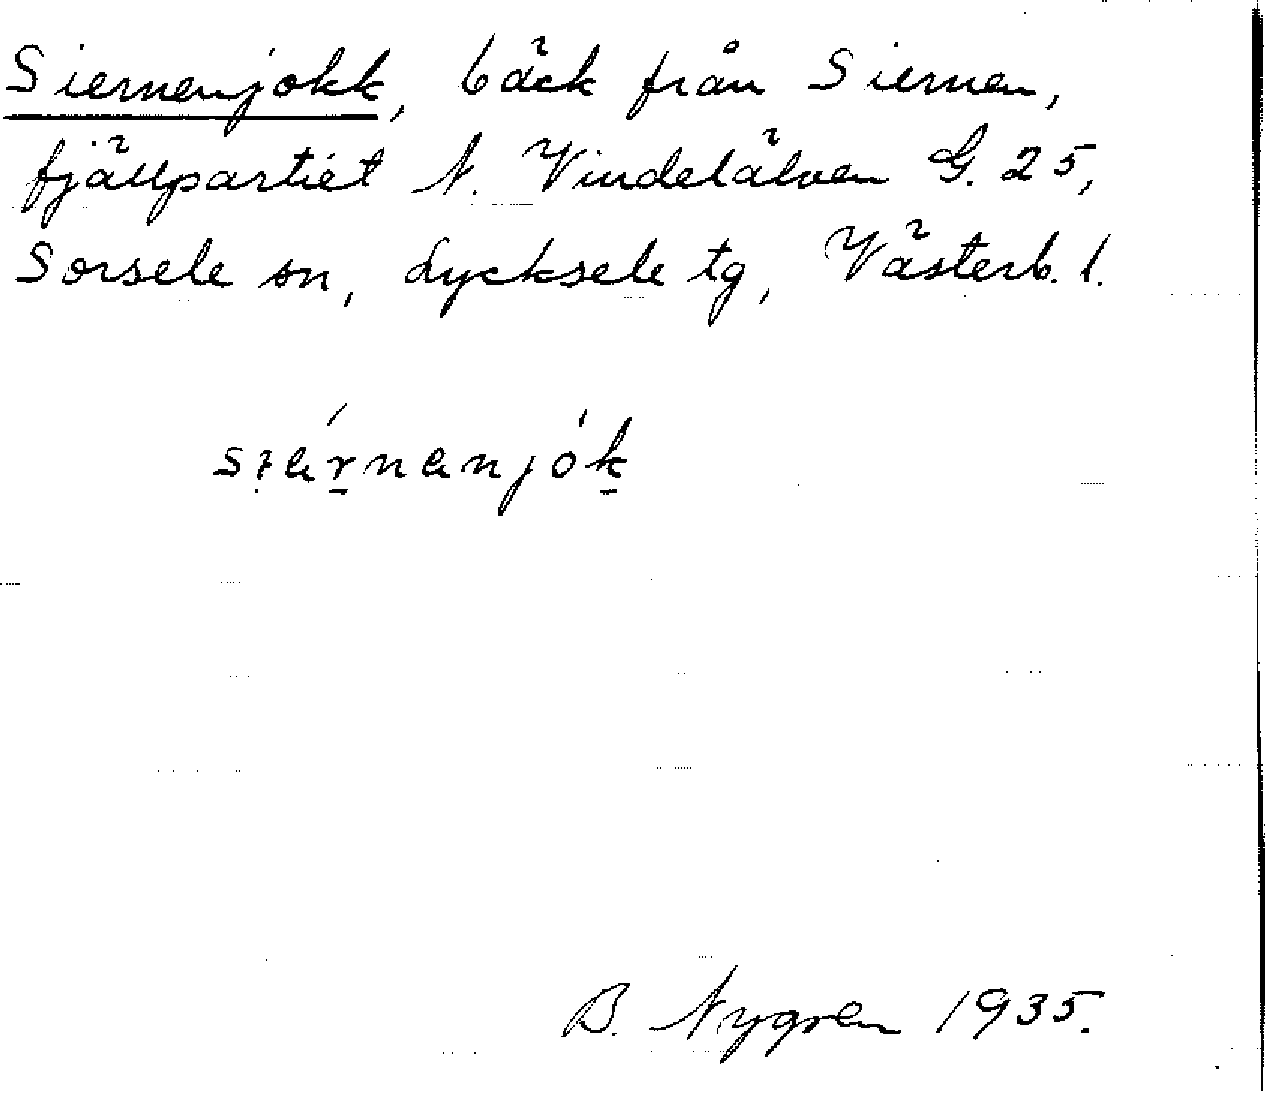 Siernenjokk, bäck från Siernen,
fjällpartiet N. Vindelälven G. 25,
Sorsele sn, Lycksele tg, Västerb. l.
B. Nygren 1935.